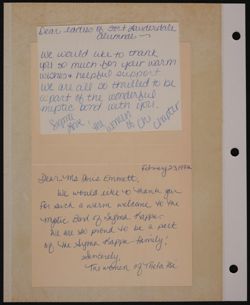 Dear ladies of Fort Lauderdale
alumnae -
We would like to thank
you so much for your warm
wishes & helpful support
We are all so thrilled to be
a part of the wonderful
mystic bond with you!
Sigma
love, The women of Chapter
February 23, 1992
Dear Ms. Doris Emmett,
We would like to thank you
for such a warm welcome to the
Mystic Bond of Sigma Kappa.
We are so proud to be a part
of the Sigma Kappa family!
Sincerely,
The women of Theta